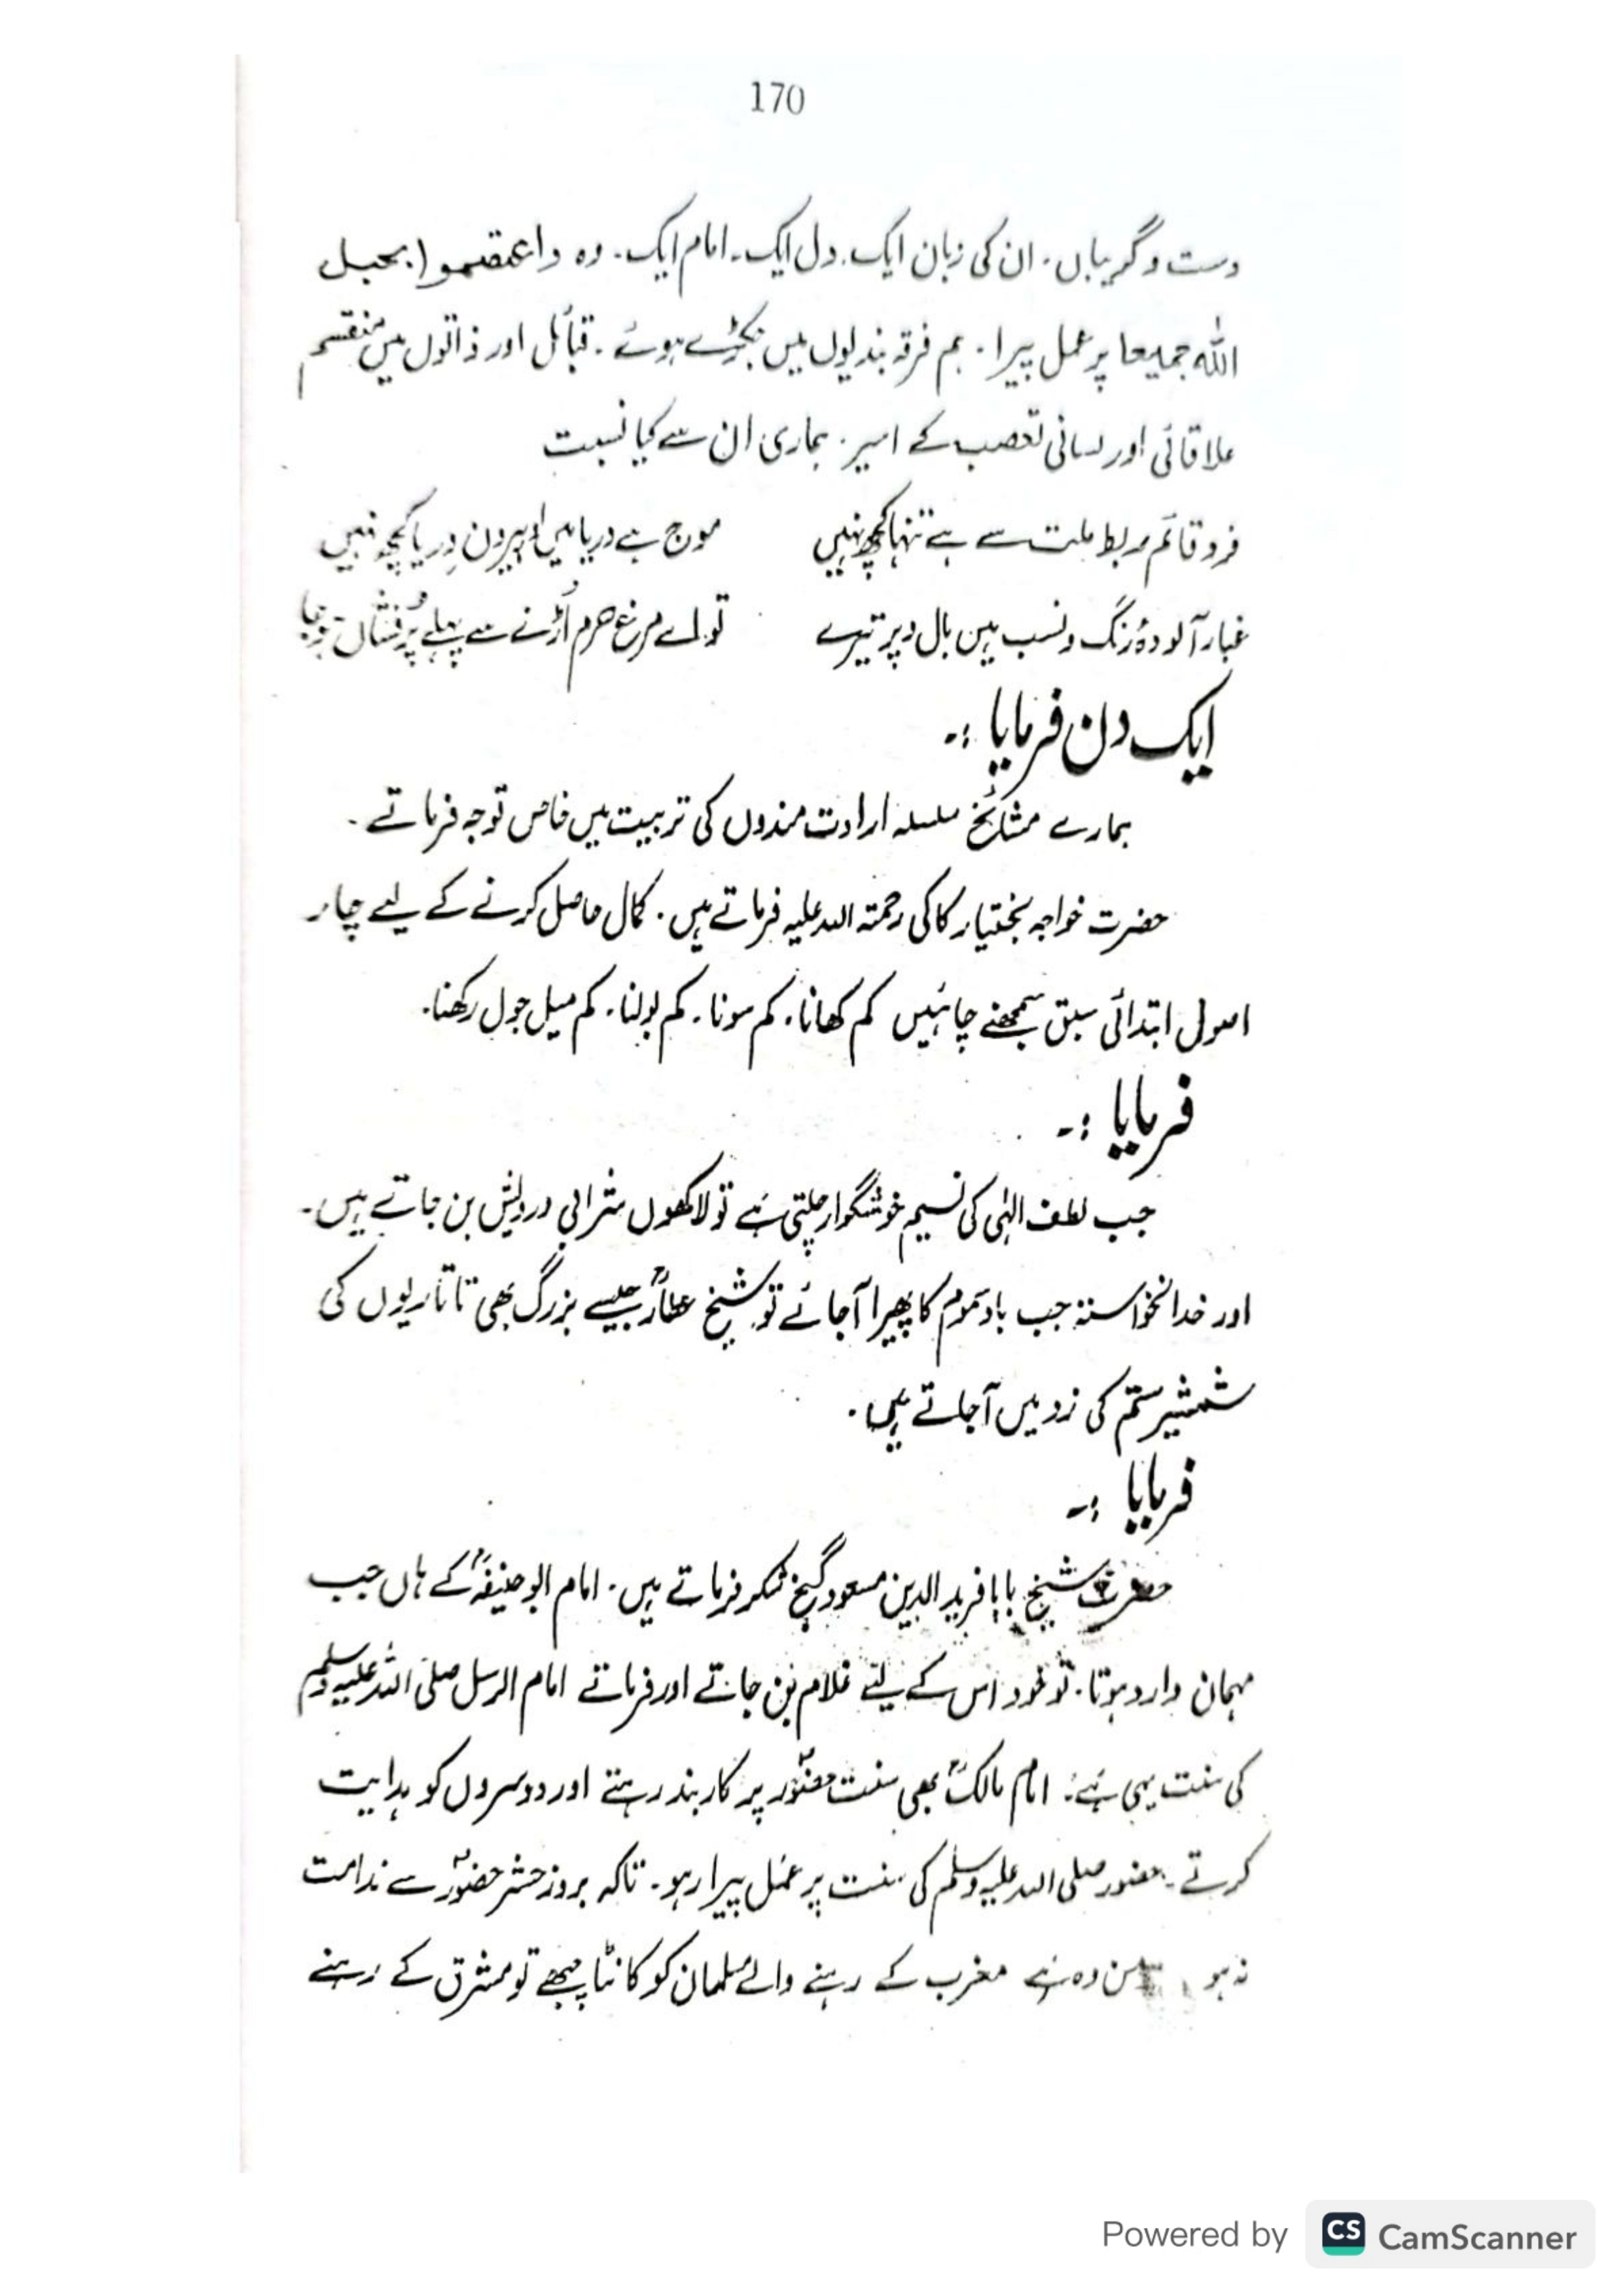 170
دست و گریباں۔ ان کی زبان ایک۔ دل ایک۔ امام ایک۔ وہ واعتصموا بحبل
اللہ جمیعا پر عمل پیرا۔ ہم فرقہ بندیوں میں جکڑے ہوئے۔ قبائل اور ذاتوں میں منقسم
علاقائی اور لسانی تعصب کے اسیر۔ ہماری ان سے کیا نسبت
فرد قائم ربط ملت سے ہے تنہا کچھ نہیں موج ہے دریا میں اور بیرون دریا کچھ نہیں
غبار آلودۂ رنگ و نسب ہیں بال و پر تیرے تو اے مرغ حرم اُڑنے سے پہلے پُر فشاں ہو جا
ایک دن فرمایا :۔
ہمارے مشائخ سلسلہ ارادت مندوں کی تربیت میں خاص توجہ فرماتے۔
حضرت خواجہ بختیار کاکی رحمتہ اللہ علیہ فرماتے ہیں۔ کمال حاصل کرنے کے لیے چار
اصول ابتدائی سبق سمجھنے چاہئیں کم کھانا۔ کم سونا۔ کم بولنا۔ کم میل جول رکھنا۔
فرمایا :۔
جب لطف الہٰی کی نسیم خوشگوار چلتی ہے تو لاکھوں شرابی درویش بن جاتے ہیں۔
اور خدانخواستہ جب بادِ سموم کا پھیرا آجائے تو شیخ عطارؒ جیسے بزرگ بھی تاتاریوں کی
شمشیر ستم کی زد میں آجاتے ہیں۔
فرمایا :۔
حضرت شیخ بابا فرید الدین مسعود گنج شکر فرماتے ہیں۔ امام ابو حنیفہؒ کے ہاں جب
مہمان وارد ہوتا۔ تو خود اس کے لیئے غلام بن جاتے اور فرماتے امام الرسل صلی اللہ علیہ وسلم
کی سنت یہی ہے۔ امام مالکؒ بھی سنت حضورؐ پر کاربند رہتے اور دوسروں کو ہدایت
کرتے۔ حضور صلی اللہ علیہ وسلم کی سنت پر عمل پیرا رہو۔ تاکہ بروز حشر حضورؐ سے ندامت
نہ ہو وہ ہے مغرب کے رہنے والے مسلمان کو کانٹا چبھے تو مشرق کے رہنے
Powered by CS CamScanner